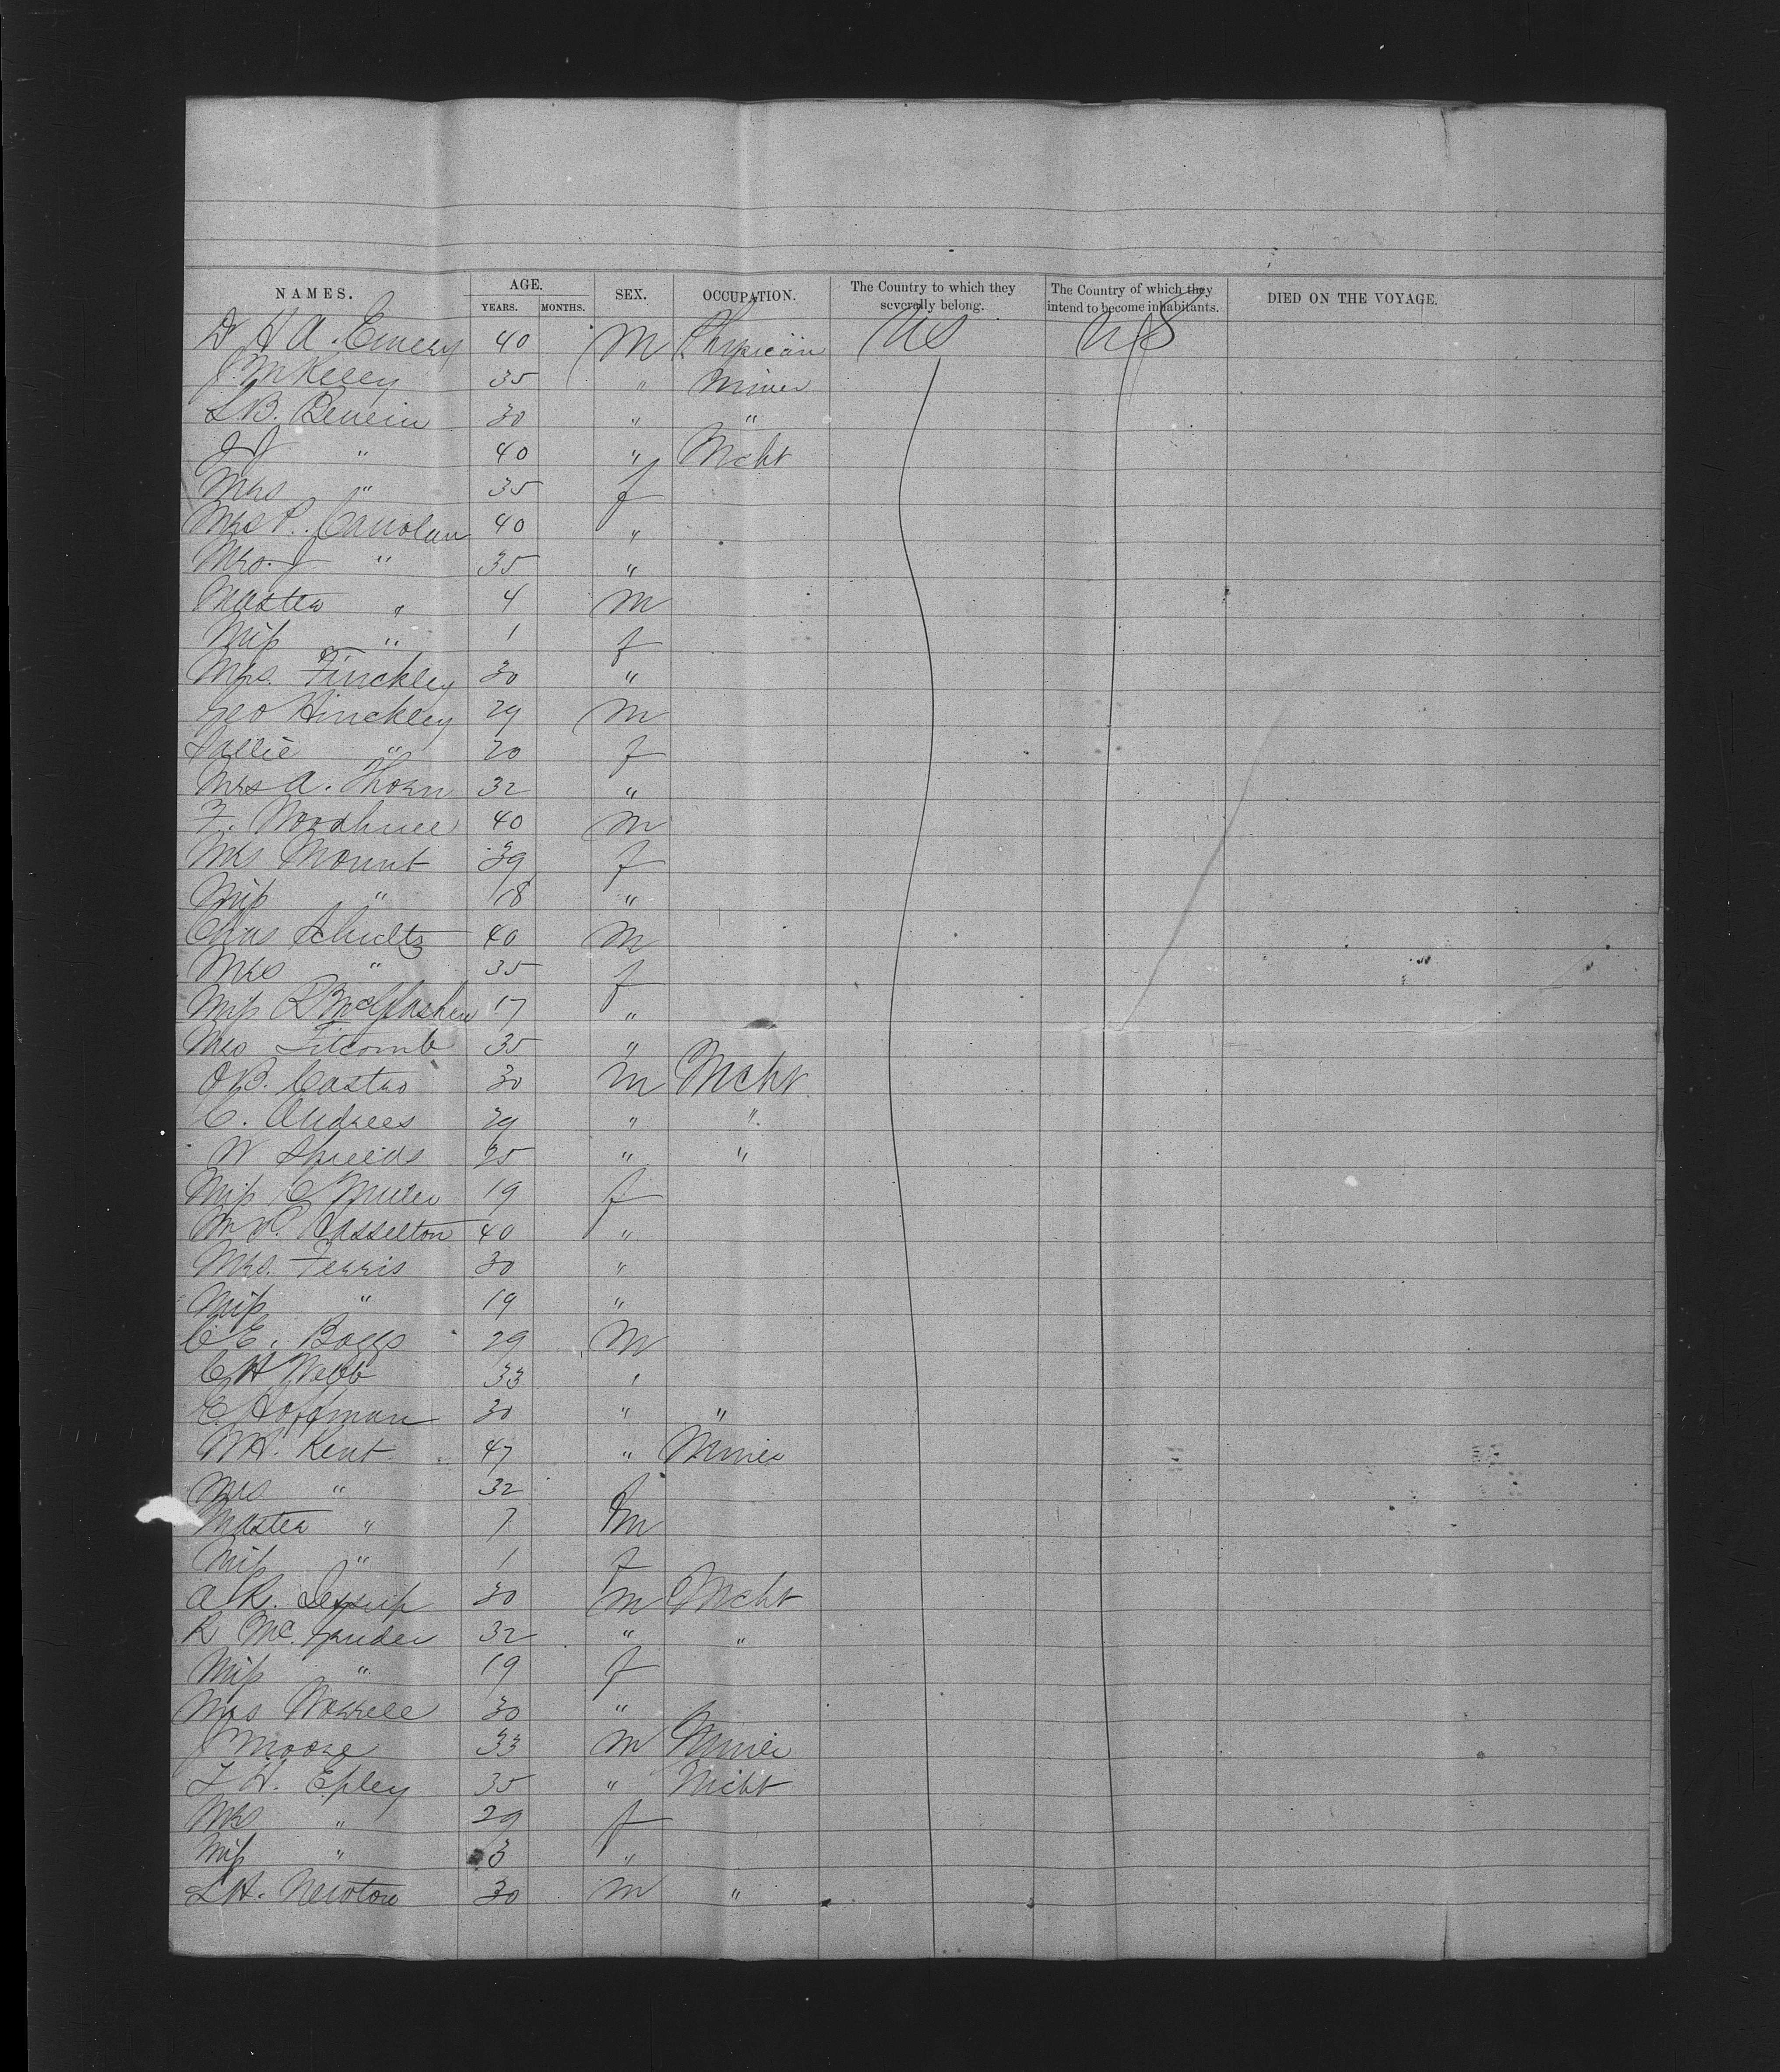 NAMES. AGE. SEX. OCCUPATION. The Country to which they severally belong. The Country of which they intend to become inhabitants. DIED ON THE VOYAGE.
YEARS. MONTHS.
Dr H A. Emery 40 M Physician US US
J. McKelly 35 " Miner
L B. Benein 30 " "
J J " 40 " Mcht
Mrs " 35 f
Mrs P. Carrolan 40 "
Mrs. J " 35 "
Master " 4 M
Miss " 1 f
Mrs. Finckley 30 "
Geo Hinckley 29 M
Sallie " 20 f
Mrs A. Thorn 32 "
F. Woodhull 40 M
Mrs Mount 39 f
Miss " 18 "
Chas Schultz 40 M
Mrs " 35 f
Miss R McGlashen 17 "
Mrs Titcomb 35 "
O B. Castro 30 M Mcht
C. Andrees 29 " "
W Shields 35 " "
Miss C Miller 19 f
Hasselton 40 "
Mrs. Ferris 30 "
Miss " 19 "
C E. Boggs 29 M
C H Webb 33 "
E. Hoffman 30 " "
Kent 47 " Miner
Mrs " 32
Master " 7 M
Miss " 1 f
A R. Jessup 30 M Mcht
R Mc. 32 " "
Miss " 19 f
Mrs Worrell 30 "
J Moore 33 M Miner
T H. Epley 35 " Mcht
Mrs " 29 f
Miss " 3 "
L H. Newton 30 M "